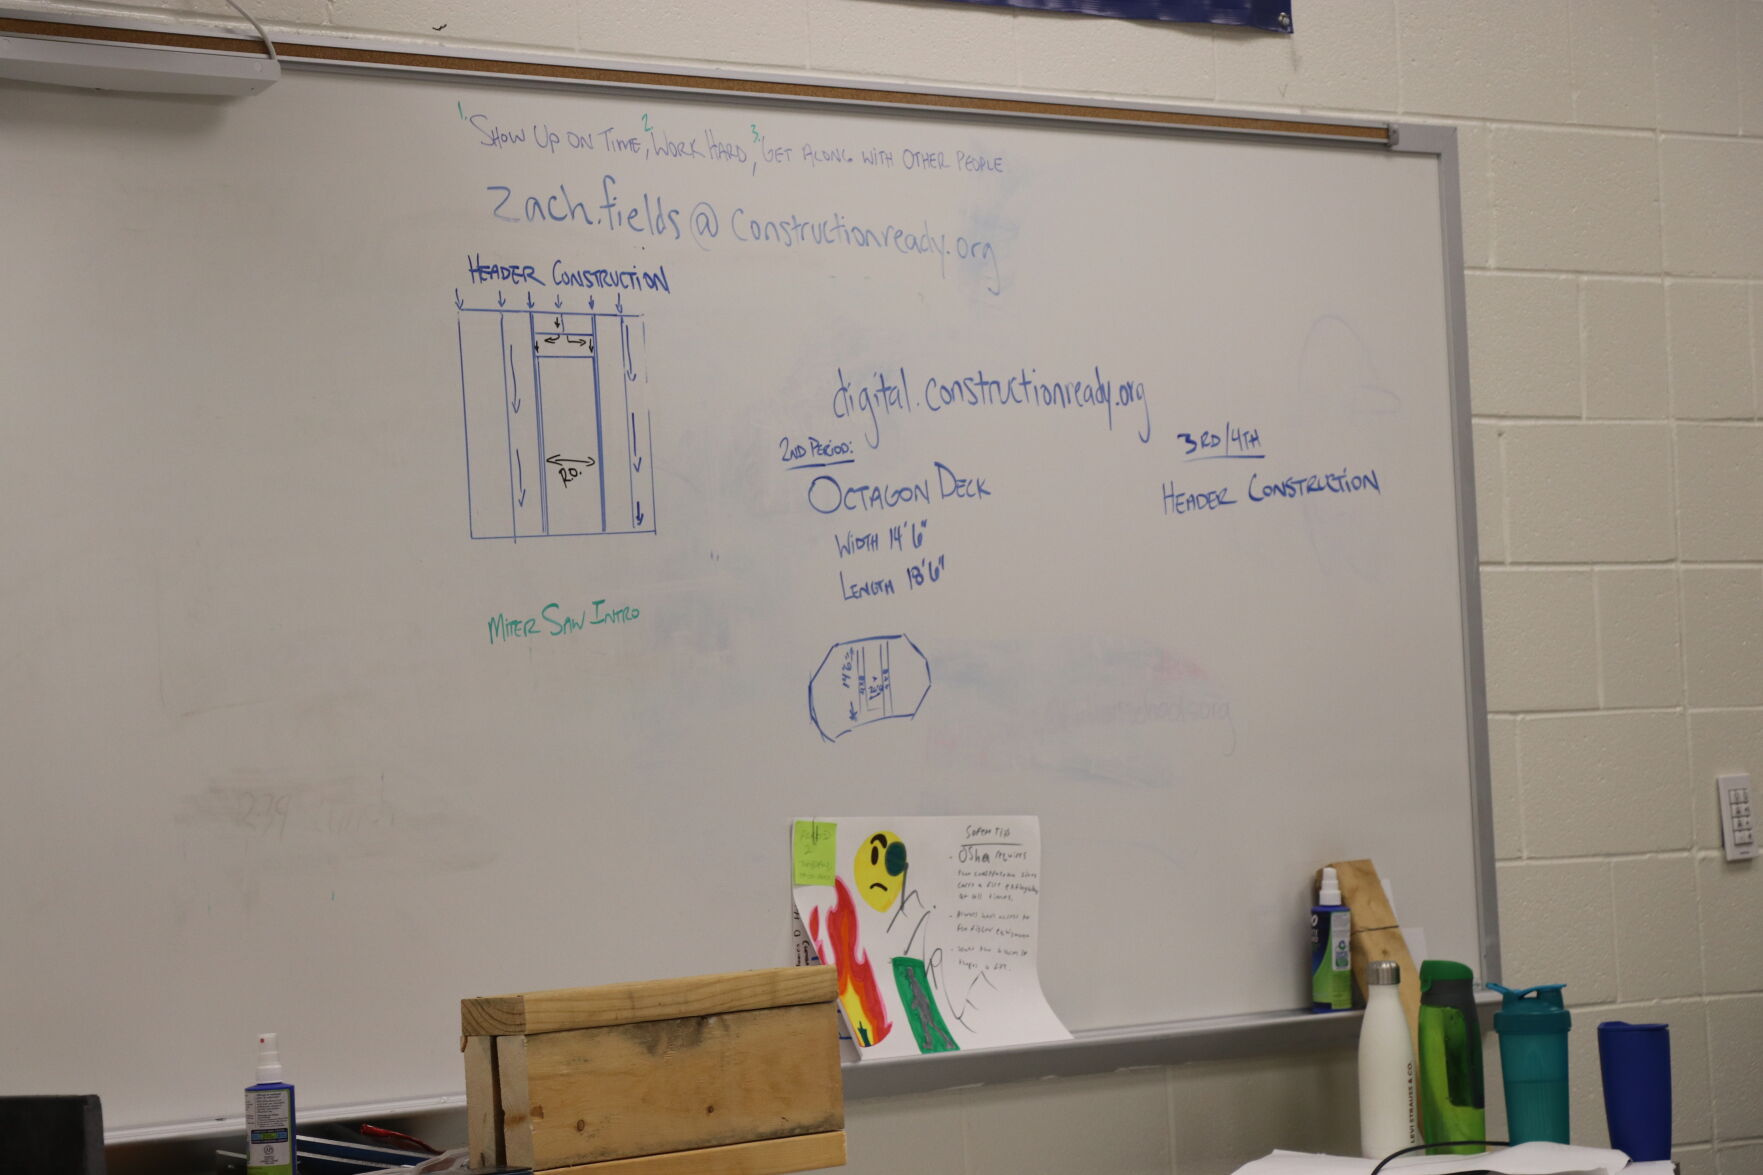 1. SHOW UP ON TIME, 2. WORK HARD, 3. GET ALONG WITH OTHER PEOPLE
zach.fields@constructionready.org
HEADER CONSTRUCTION
R.O.
MITER SAW INTRO
digital.constructionready.org
2ND PERIOD:
OCTAGON DECK
WIDTH 14'6"
LENGTH 18'6"
14'6"
3RD/4TH
HEADER CONSTRUCTION
SAFETY TIP
- OSHA requires
LEVI STRAUSS & CO